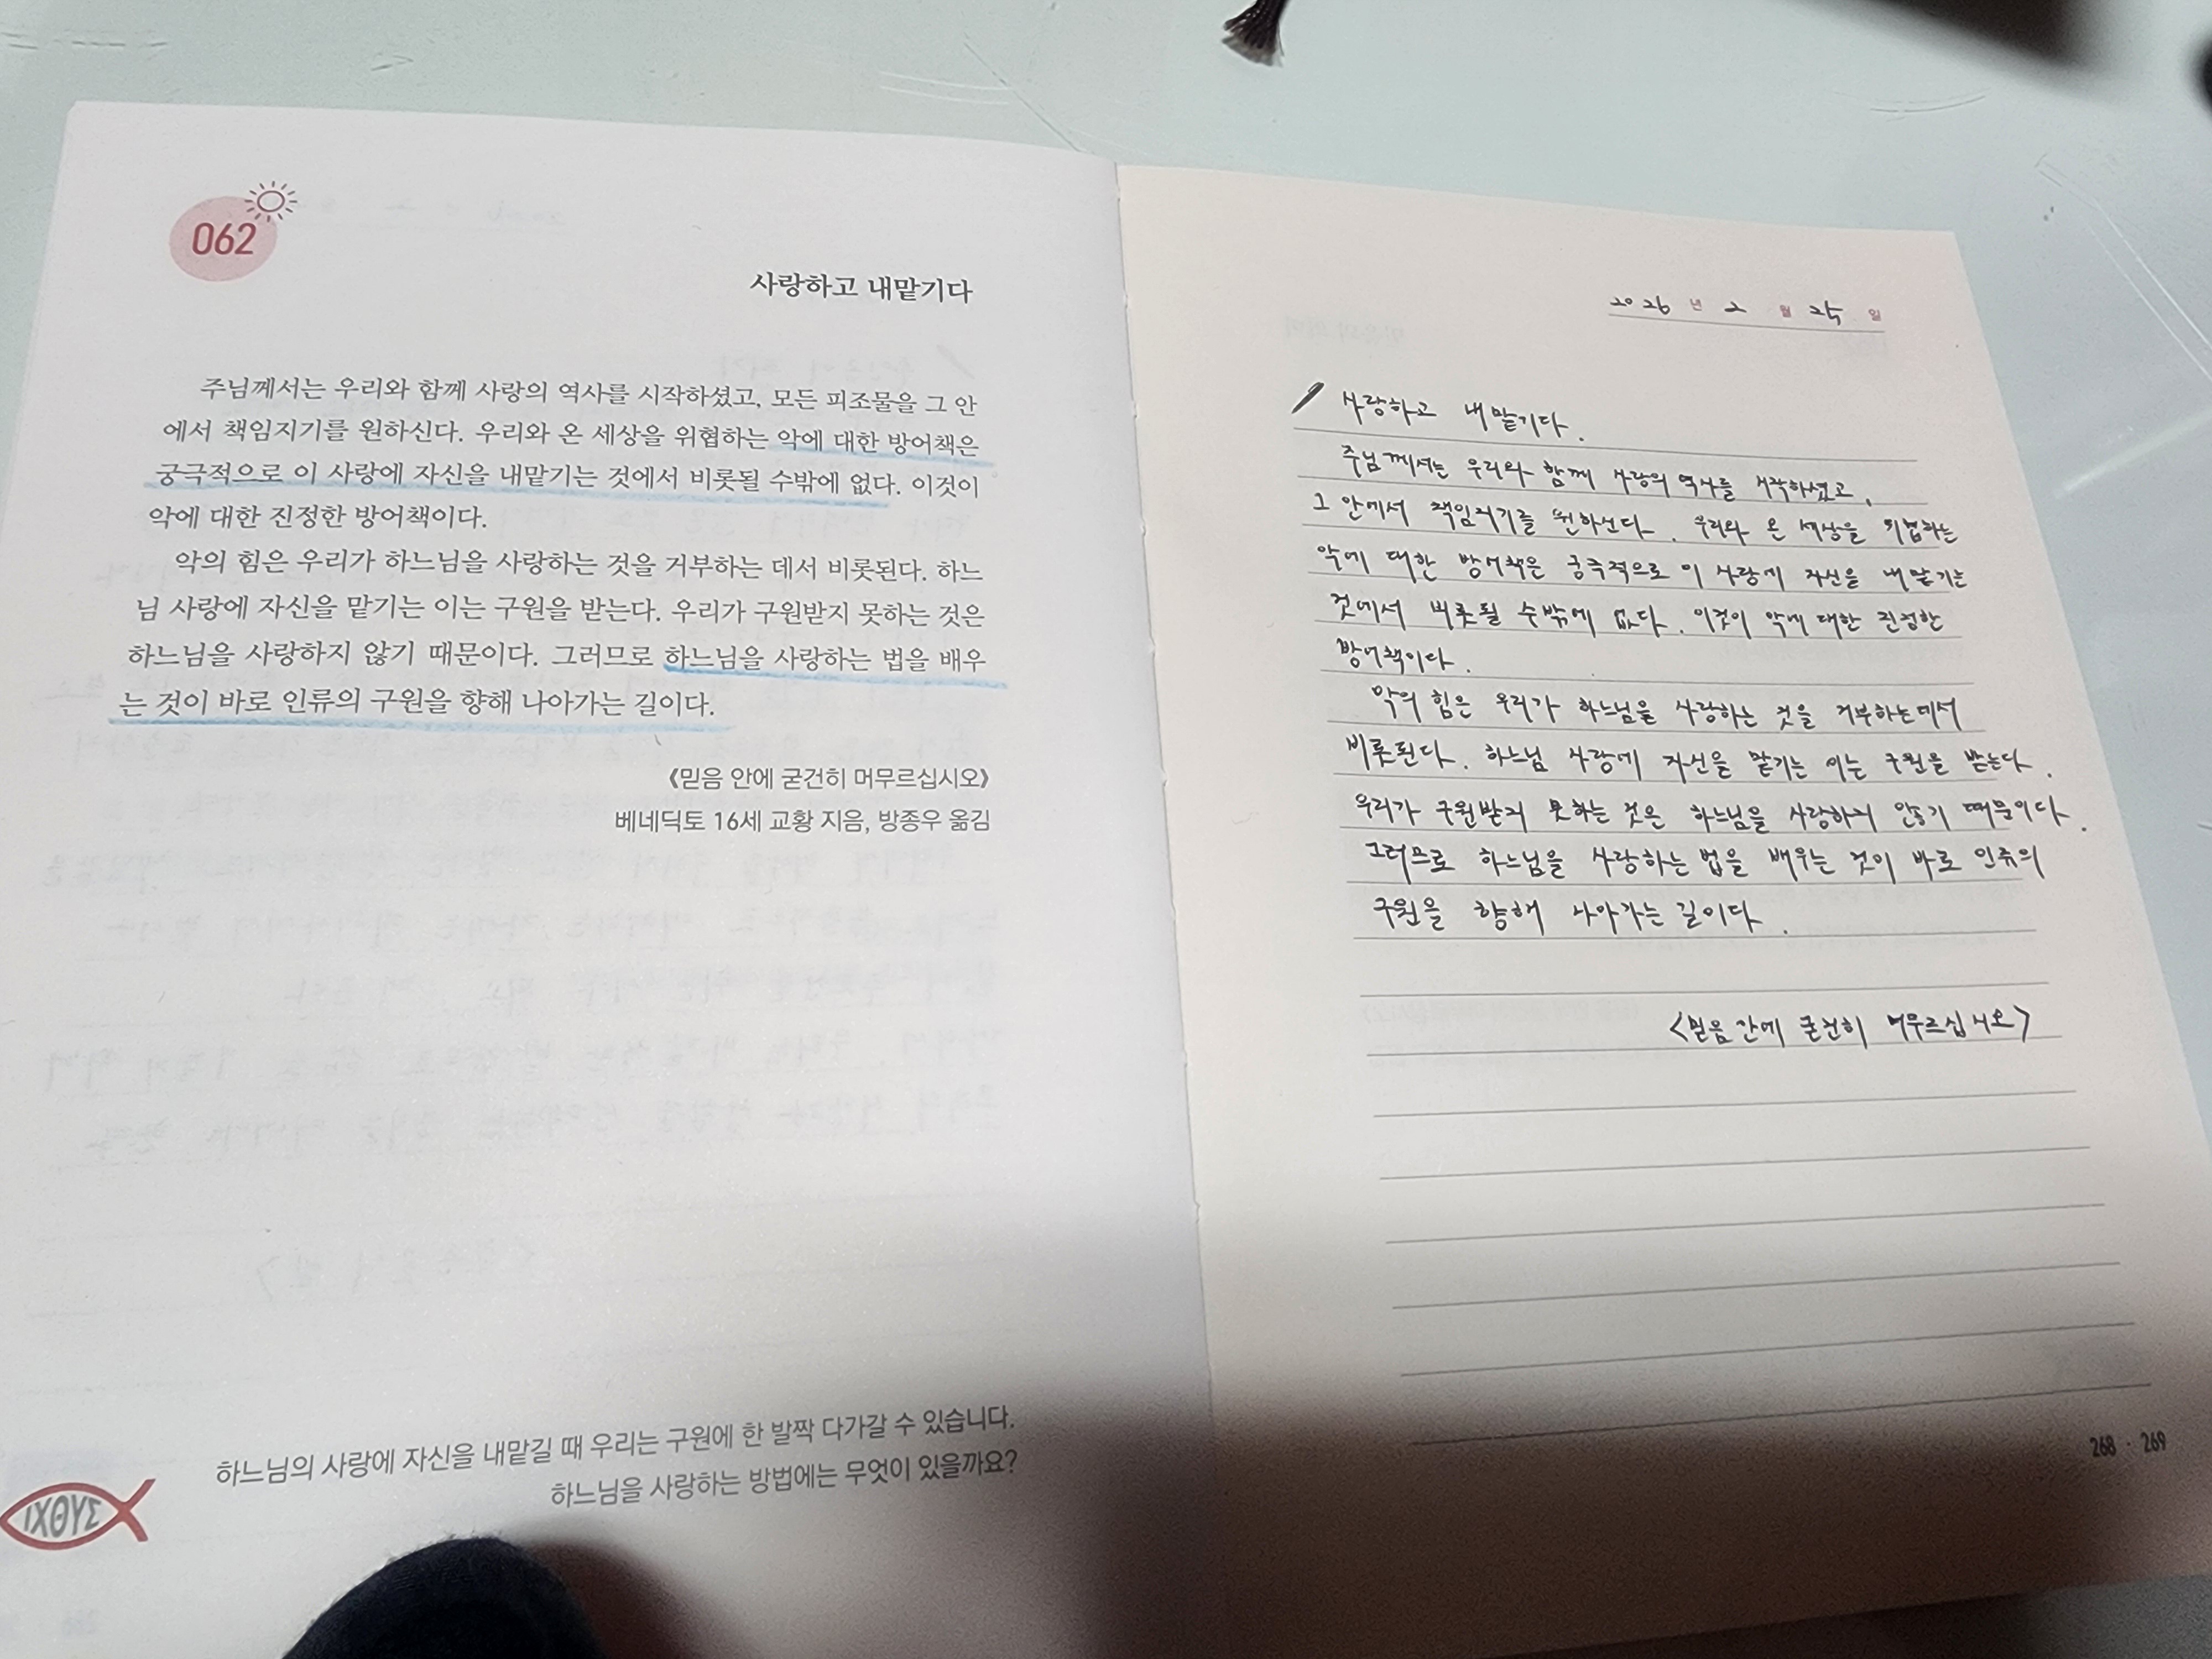 062
사랑하고 내맡기다
주님께서는 우리와 함께 사랑의 역사를 시작하셨고, 모든 피조물을 그 안
에서 책임지기를 원하신다. 우리와 온 세상을 위협하는 악에 대한 방어책은
궁극적으로 이 사랑에 자신을 내맡기는 것에서 비롯될 수밖에 없다. 이것이
악에 대한 진정한 방어책이다.
악의 힘은 우리가 하느님을 사랑하는 것을 거부하는 데서 비롯된다. 하느
님 사랑에 자신을 맡기는 이는 구원을 받는다. 우리가 구원받지 못하는 것은
하느님을 사랑하지 않기 때문이다. 그러므로 하느님을 사랑하는 법을 배우
는 것이 바로 인류의 구원을 향해 나아가는 길이다.
《믿음 안에 굳건히 머무르십시오》
베네딕토 16세 교황 지음, 방종우 옮김
하느님의 사랑에 자신을 내맡길 때 우리는 구원에 한 발짝 다가갈 수 있습니다.
하느님을 사랑하는 방법에는 무엇이 있을까요?
ΙΧΘΥΣ
2026 년 2 월 25 일
사랑하고 내맡기다.
주님께서는 우리와 함께 사랑의 역사를 시작하셨고,
그 안에서 책임지기를 원하신다. 우리와 온 세상을 위협하는
악에 대한 방어책은 궁극적으로 이 사랑에 자신을 내맡기는
것에서 비롯될 수밖에 없다. 이것이 악에 대한 진정한
방어책이다.
악의 힘은 우리가 하느님을 사랑하는 것을 거부하는데서
비롯된다. 하느님 사랑에 자신을 맡기는 이는 구원을 받는다.
우리가 구원받지 못하는 것은 하느님을 사랑하지 않기 때문이다.
그러므로 하느님을 사랑하는 법을 배우는 것이 바로 인류의
구원을 향해 나아가는 길이다.
<믿음 안에 굳건히 머무르십시오>
268 · 269